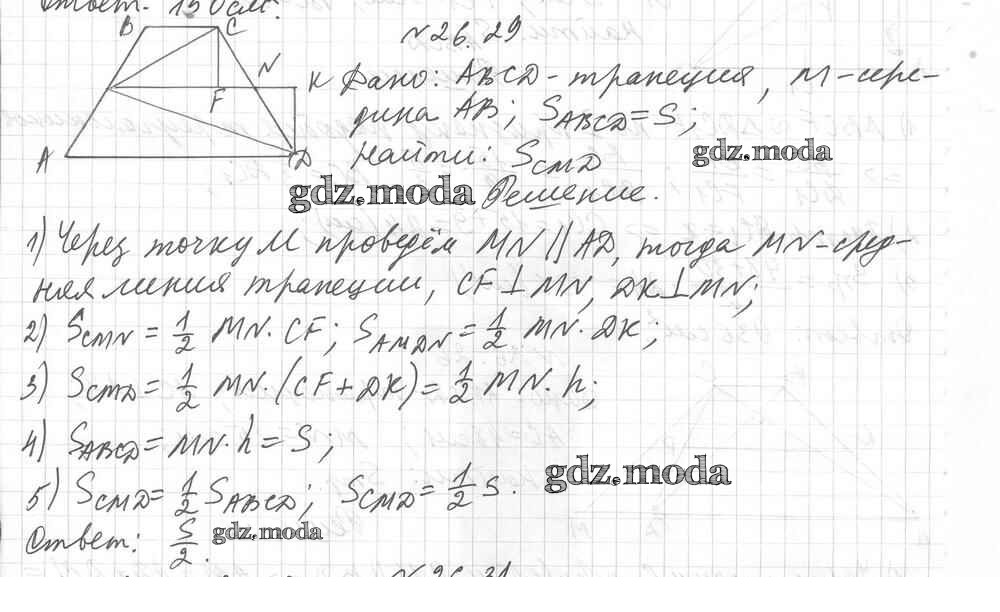 Ответ: 150 см².
№26.29
B C N K F A D
Дано: ABCD - трапеция, M - сере-
дина AB; S_ABCD = S;
Найти: S_CMD
gdz.moda
gdz.moda
Решение.
1) Через точку M проведём MN || AD, тогда MN - сред-
няя линия трапеции, CF ⊥ MN, DK ⊥ MN;
2) S_CMN = 1/2 MN · CF; S_AMDN = 1/2 MN · DK;
3) S_CMD = 1/2 MN · (CF + DK) = 1/2 MN · h;
4) S_ABCD = MN · h = S;
gdz.moda
5) S_CMD = 1/2 S_ABCD; S_CMD = 1/2 S.
Ответ: S/2.
gdz.moda
№26.31